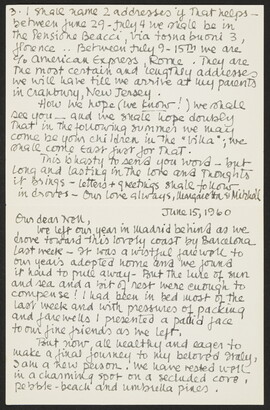 3. I shall name 2 addresses if that helps -
between June 29 - July 4 we shall be in
the Pensione Beacci, via Tosnabuoni 3,
Florence .. Between July 9 - 15th we are
c/o American Express, Rome. They are
the most certain and lengthy addresses
we will have till we arrive at my parents
in Cranbury, New Jersey.
How we hope (we know!) we shall
see you — and we shall hope doubly
that in the following summer we may
come be your children in the "Villa"; we
shall come East just for that.
This is hasty to send you word — but
long and lasting in the love and thoughts
it brings - letters & greetings shall follow
in droves - Our love always, & Mitchell
June 15, 1960
Our dear Nell,
We left our year in Madrid behind as we
drove toward this lovely coast by Barcelona
last week - It was a wistful farewell to
our year's adopted home and we found
it hard to pull away - But the lure of sun
and sea and a bit of rest were enough to
compense! I had been in bed most of the
last week and with pressures of packing
and farewells I presented a pallid face
to our fine friends as we left.
But now, all healthy and eager to
make a final journey to my beloved Italy,
I am a new person. We have rested well
in a charming spot on a secluded cove,
pebble-beach and umbrella pines.